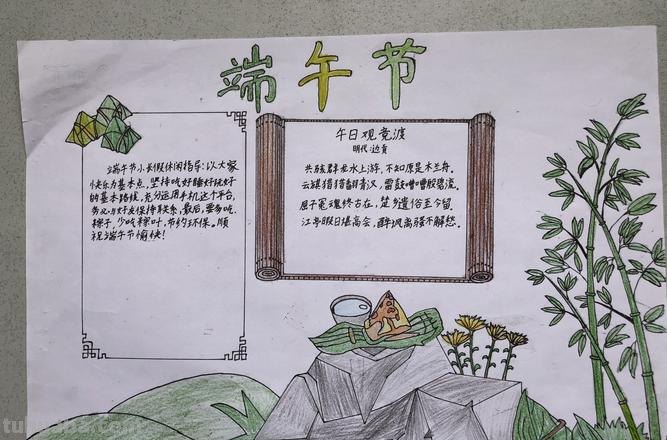 端午节
端午节小长假休闲指导：以大家
快乐为基本点，坚持吃好睡好玩好
的基本路线，充分运用手机这个平台，
务必与好友保持联系，最后，要多吃
粽子，少吃粽叶，节约环保。顺
祝端午节愉快！
午日观竞渡
明代·边贡
共骇群龙水上游，不知原是木兰舟。
云旗猎猎翻青汉，雷鼓嘈嘈殷碧流。
屈子冤魂终古在，楚乡遗俗至今留。
江亭暇日堪高会，醉讽离骚不解愁。